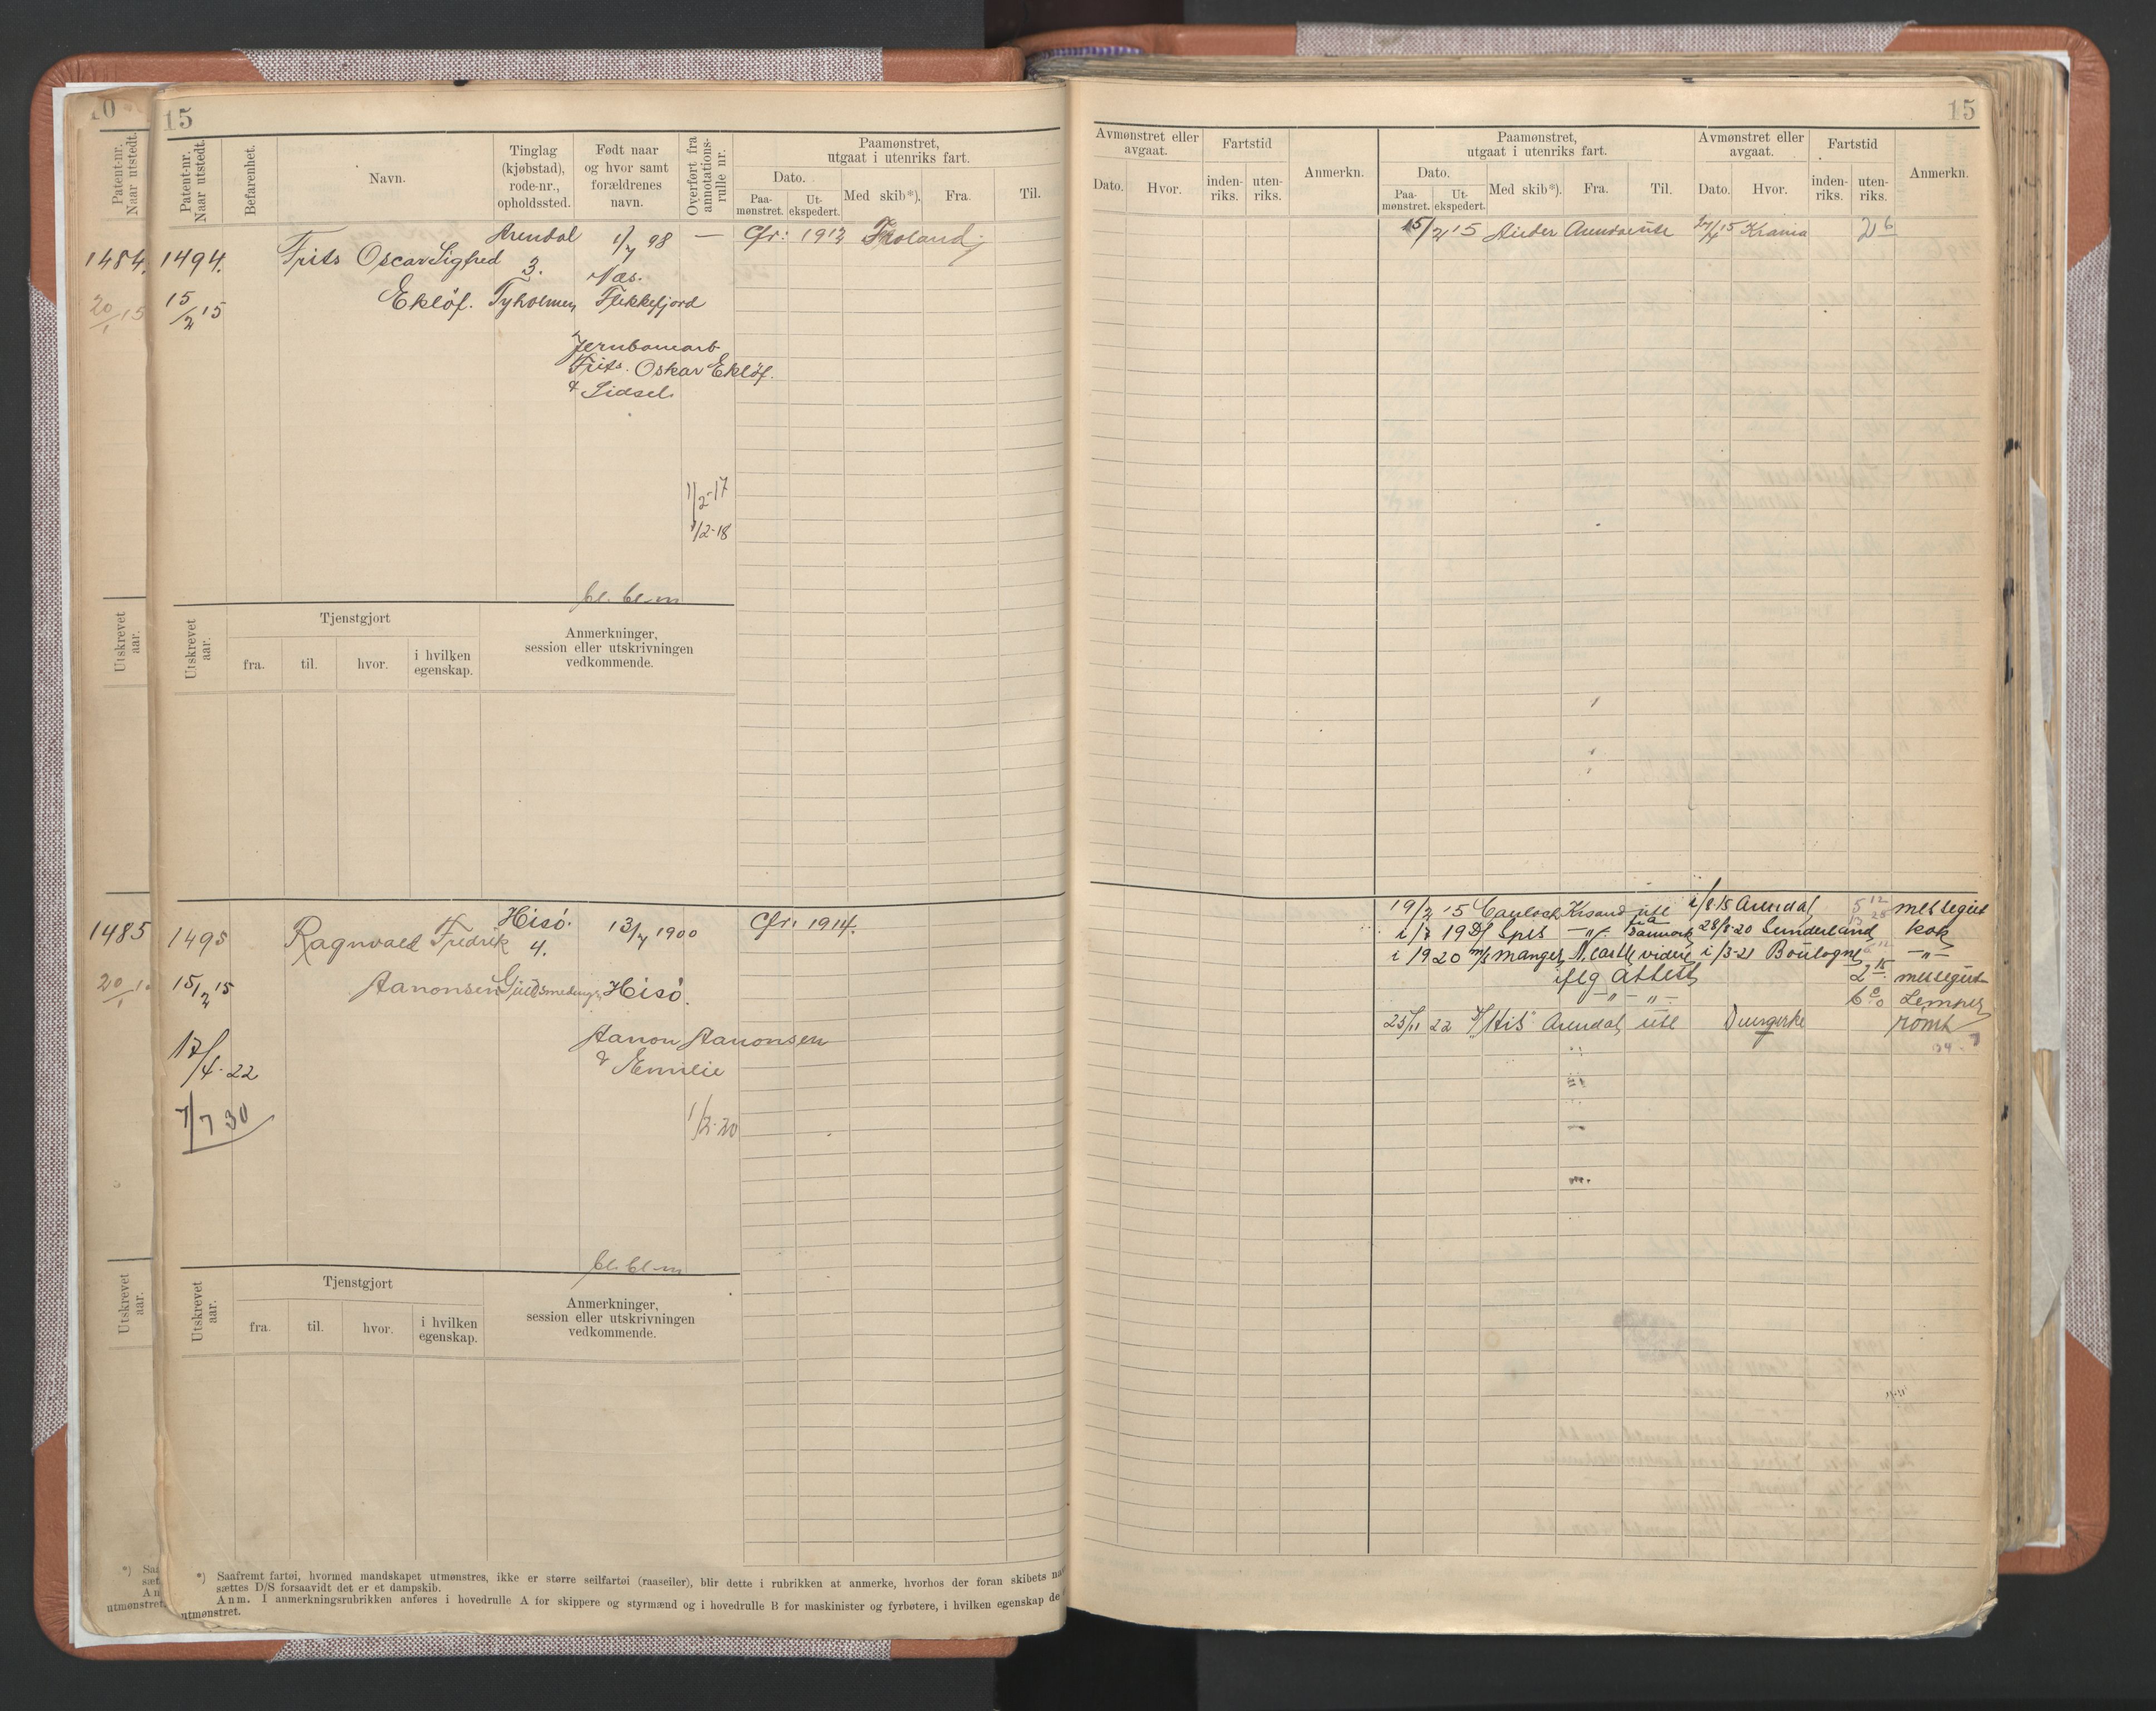 10
15
15
Patent-nr. Naar utstedt.
Patent-nr. Naar utstedt.
Befarenhet.
Navn.
Tinglag (kjøbstad), rode-nr., opholdssted.
Født naar og hvor samt forældrenes navn.
Overført fra annotations-rulle nr.
Paamønstret, utgaat i utenriks fart.
Dato.
Paa-mønstret.
Ut-ekspedert.
Med skib*).
Fra.
Til.
Avmønstret eller avgaat.
Dato.
Hvor.
Fartstid
inden-riks.
uten-riks.
Anmerkn.
Paamønstret, utgaat i utenriks fart.
Dato.
Paa-mønstret.
Ut-ekspedert.
Med skib*).
Fra.
Til.
Avmønstret eller avgaat.
Dato.
Hvor.
Fartstid
inden-riks.
uten-riks.
Anmerkn.
1484.
20/1 15
1494.
15/2 15
Frits Oscar Sigfred
Ekløf.
Arendal
3.
Tyholmen
1/7 98
Næs.
Flekkefjord
Jernbanearb
Frits. Oskar Ekløf.
& Sidsel.
—
Cfr: 1912 Froland
1/2-17
1/2-18
bl. bl-m
15/2 15
Arendal ute
27/4 15 Krania
2 6
Utskrevet aar.
Utskrevet aar.
Tjenstgjort
fra.
til.
hvor.
i hvilken egenskap.
Anmerkninger, session eller utskrivningen vedkommende.
1485
20/1
1495
15/2 15
17/4-22
7/7 30
Ragnvald Fredrik
Aanonsen
Hisø.
4.
Guldsmedeng.
13/7 1900
Hisø.
Aanon Aanonsen
& Emilie
1/2-20
Cfr: 1914.
bl. bl-m
19/2 15 Krsand ute i/8-15 Arendal 5 12 messegut
i/7 19 D/S Spes —"— via Danmark 28/8-20 Sunderland kok
i 1920 m/s Manger N.castle videre i/3-21 Boulogne —"—
iflg Attest 2 15 messegut
—"—"— 6 0 Lemper
25/11 22 "His" Arendal ute Dunquerke rømt
Utskrevet aar.
Utskrevet aar.
Tjenstgjort
fra.
til.
hvor.
i hvilken egenskap.
Anmerkninger, session eller utskrivningen vedkommende.
*) Saafremt fartøi, hvormed mandskapet utmønstres, ikke er større seilfartøi (raaseiler), blir dette i rubrikken at anmerke, hvorhos der foran skibets na
sættes D/S forsaavidt det er et dampskib.
Anm. I anmerkningsrubrikken anføres i hovedrulle A for skippere og styrmænd og i hovedrulle B for maskinister og fyrbøtere, i hvilken egenskap de
utmønstret.